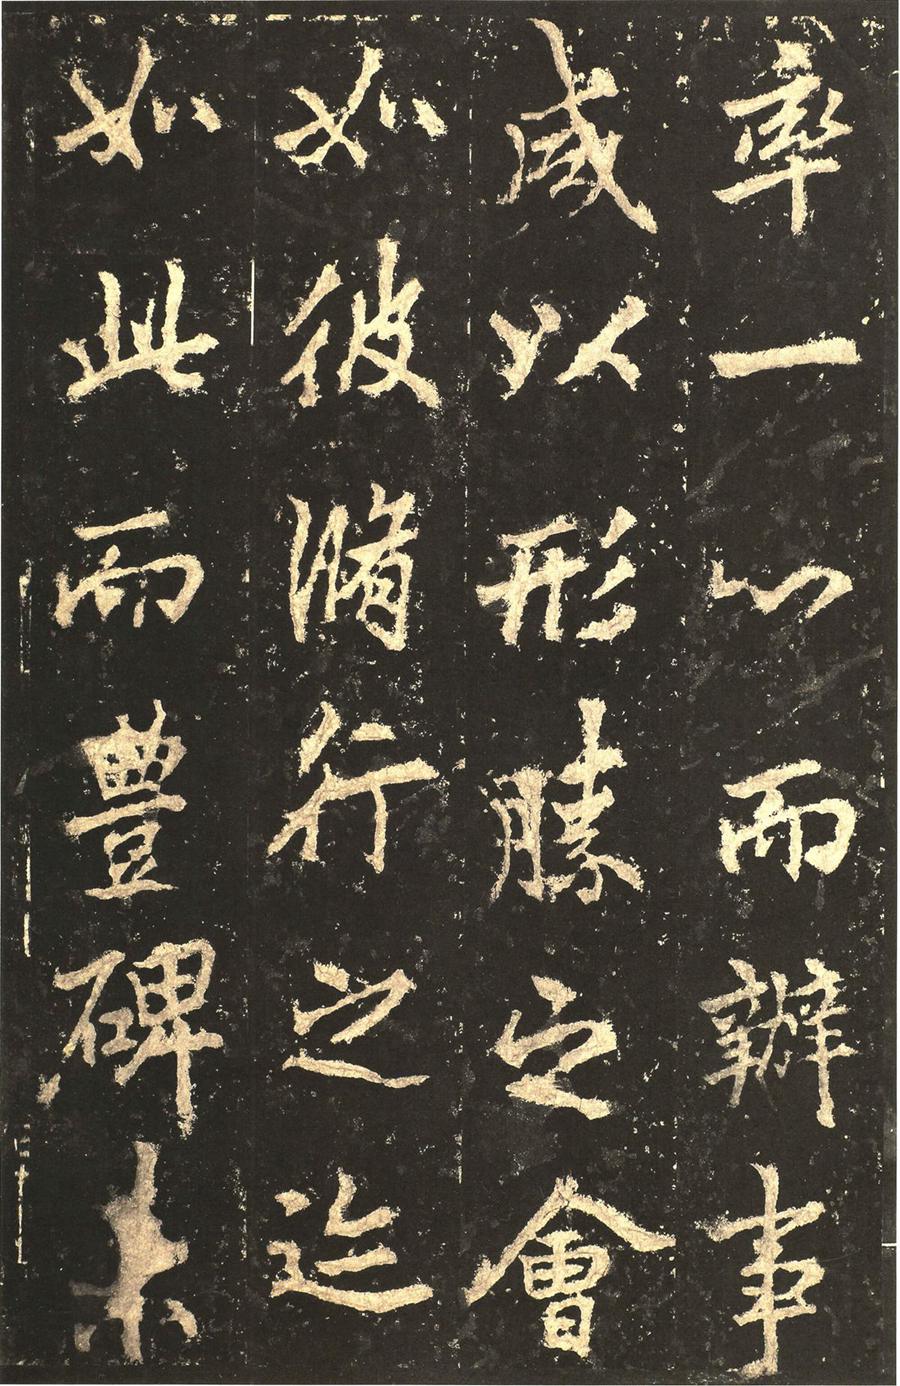 率一心而辦事
咸以形勝之會
如彼脩行之迹
如此而豊碑未